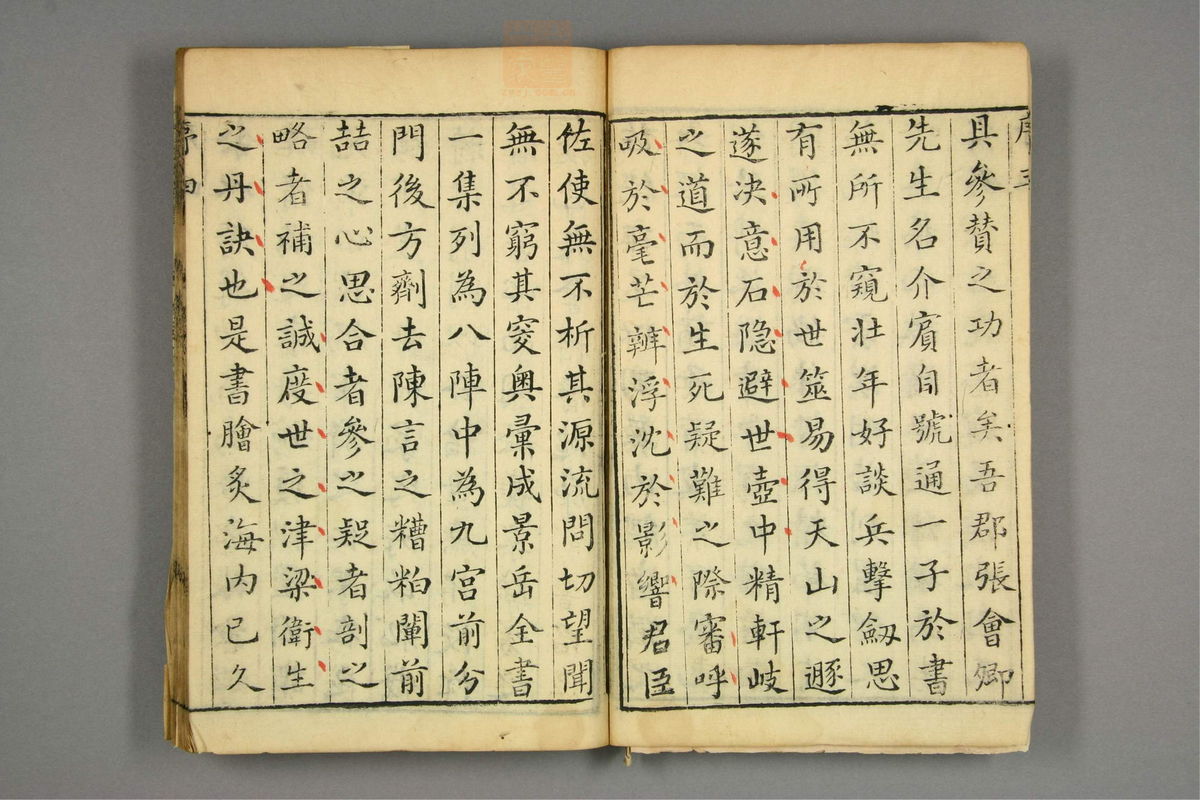 序三
具參賛之功者矣吾郡張會卿
先生名介賔自號通一子於書
無所不窺壯年好談兵擊劒思
有所用於世筮易得天山之遯
遂决意石隐避世壺中精軒岐
之道而於生死疑難之際審呼
吸於毫芒辨浮沈於影響君臣
佐使無不析其源流問切望聞
無不窮其窔奥彚成景岳全書
一集列為八陣中為九宫前分
門後方劑去陳言之糟粕闡前
喆之心思合者參之疑者剖之
略者補之誠度世之津梁衛生
之丹訣也是書膾炙海内已久
序四